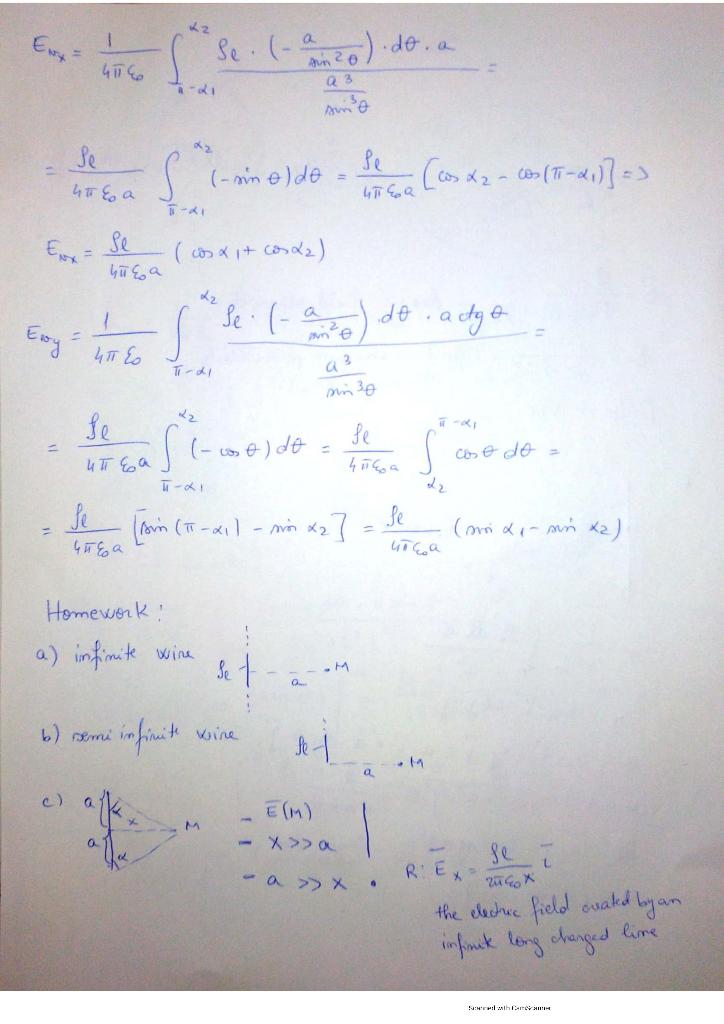 E_{Mx} = 1/(4πε₀) ∫_{π-α₁}^{α₂} (ρ_l · (- a/sin²θ) · dθ · a)/(a³/sin³θ) =
= ρ_l/(4πε₀a) ∫_{π-α₁}^{α₂} (-sin θ)dθ = ρ_l/(4πε₀a) [cos α₂ - cos(π-α₁)] =>
E_{Mx} = ρ_l/(4πε₀a) (cos α₁ + cos α₂)
E_{My} = 1/(4πε₀) ∫_{π-α₁}^{α₂} (ρ_l · (- a/sin²θ) · dθ · a ctg θ)/(a³/sin³θ) =
= ρ_l/(4πε₀a) ∫_{π-α₁}^{α₂} (-cos θ)dθ = ρ_l/(4πε₀a) ∫_{α₂}^{π-α₁} cos θ dθ =
= ρ_l/(4πε₀a) [sin(π-α₁) - sin α₂] = ρ_l/(4πε₀a) (sin α₁ - sin α₂)
Homework:
a) infinite wire ρ_l a M
b) semi infinite wire ρ_l a M
c) a α x M a α
- E̅(M)
- x >> a
- a >> x
R: E̅_x = ρ_l/(2πε₀x) i̅
the electric field created by an
infinite long charged line
Scanned with CamScanner